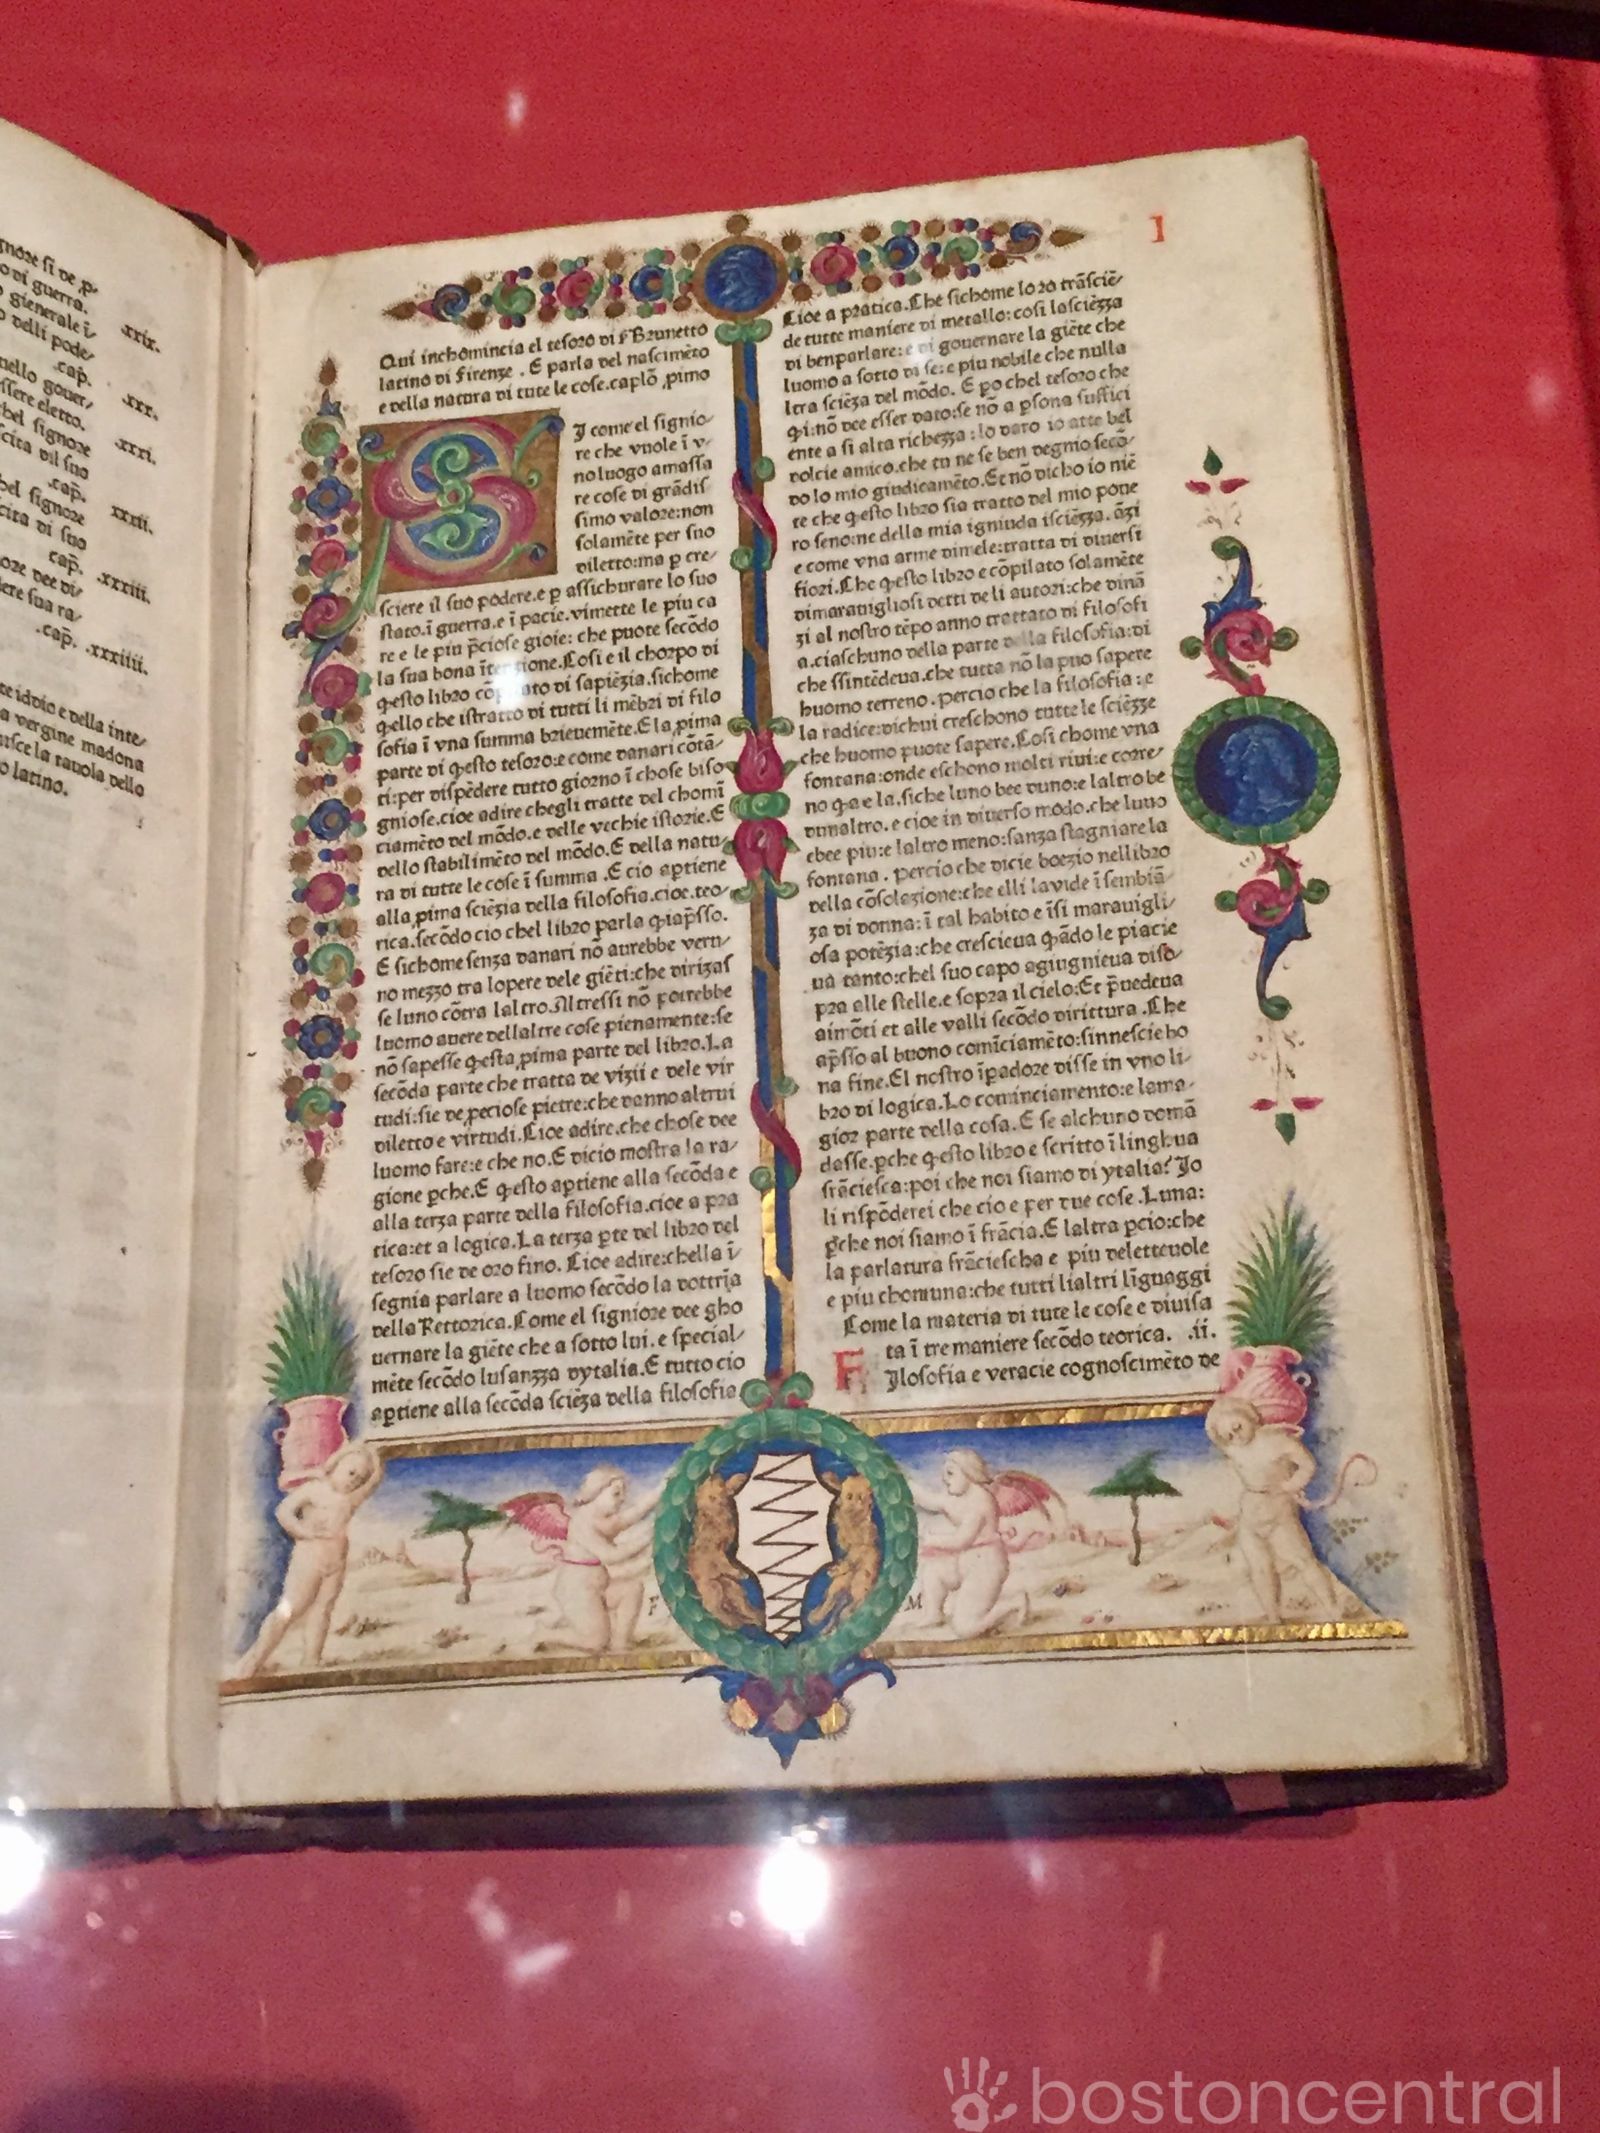 gnore si de p̱-
o di guerra. .xxix.
gienerale ī-
o delli pode/
.cap̄. .xxx.
nello gouer/
ssere eletto. .xxxi.
hel signore
scita dil suo
.cap̄. .xxxii.
hel signore
cita di suo
cap̄. .xxxiii.
ore dee di/
dere sua ra/
.cap̄. .xxxiiii.
te idvio e della inte/
a vergine madona
uisce la tauola dello
o latino.
1
Qui inchomincia el tesoro di s̄ Brunetto
latino di firenze . E parla del nascimēto
e della natura di tute le cose.caplō .pimo
S
I come el signio/
re che vuole ī v/
no luogo amassa
re cose di grādis
simo valore:non
solamēte per suo
diletto:ma p̱ cre/
sciere il suo podere.e p̱ assichurare lo suo
stato.ī guerra.e ī pacie.vimette le piu ca
re e le piu p̄ciose gioie: che puote secōdo
la sua bona ītentione.Cosi e il chorpo di
q̄esto libro cōpilato di sapiēzia.sichome
q̄ello che istratto di tutti li mēbri di filo
sofia ī vna summa brieuemēte.E la p̱ima
parte di q̄esto tesoro:e come danari cōtā/
ti:per dispēdere tutto giorno ī chose biso/
gniose.cioe adire chegli tratte del chomī
ciamēto del mōdo.e delle vechie istorie.E
dello stabilimēto del mōdo.E della natu/
ra di tutte le cose ī summa .E cio aptiene
alla p̱ima sciēzia della filosofia.cioe.teo/
rica.secōdo cio chel libro parla q̄iap̄sso.
E sichome senza danari nō aurebbe veru/
no mezzo tra lopere dele giēti:che dirizas
se luno cōtra laltro.Altressi nō potrebbe
luomo auere dellaltre cose pienamente:se
nō sapesse q̄esta p̱ima parte del libro.La
secōda parte che tratta de vizii e dele vir
tudi:sie de p̱eciose pietre:che danno altrui
diletto e virtudi.Cioe adire.che chose dee
luomo fare:e che no.E dicio mostra la ra/
gione p̱che.E q̄esto ap̱tiene alla secōda e
alla terza parte della filosofia.cioe a pra
tica:et a logica.La terza p̱te del libro del
tesoro sie de oro fino. Cioe adire:chella ī/
segnia parlare a luomo secōdo la dottrīa
della Rettorica.Come el signiore dee gho
uernare la giēte che a sotto lui.e special/
mēte secōdo lusanzza dytalia.E tutto cio
ap̱tiene alla secōda sciēza della filosofia
Cioe a pratica.Che sichome loro trāsciē/
de tutte maniere di metallo:cosi lasciēzza
di benparlare:e di gouernare la giēte che
luomo a sotto di se:e piu nobile che nulla
ltra sciēza del mōdo. E po chel tesoro che
q̄i:nō dee esser dato:se nō a p̱sona suffici
ente a si alta richezza:lo daro io atte bel
dolcie amico.che tu ne se ben degnio secō/
do lo mio giudicamēto.Et nō dicho io niē
te che q̄esto libro sia tratto del mio poue
ro seno:ne della mia igniuda isciēzza. āzi
e come vna arme dimele:tratta di diuersi
fiori.Che q̄esto libro e cōpilato solamēte
dimarauigliosi detti deli autori:che dinā
zi al nostro tēpo anno trattato di filosofi
a.ciaschuno della parte della filosofia:di
che ssintēdeua.che tutta nō la puo sapere
huomo terreno. Percio che la filosofia:e
la radice:dichui creschono tutte le sciēzze
che huomo puote sapere.Cosi chome vna
fontana:onde eschono molti riui:e corre/
no q̄a e la.siche luno bee duno:e laltro be
dunaltro.e cioe in diuerso mōdo.che luno
ebee piu:e laltro meno:sanza stagniare la
fontana . Percio che dicie boezio nellibro
della cōsolazione:che elli la vide ī sembiā/
za di donna: ī tal habito e īsi marauigli/
osa potēzia:che crescieua q̄ādo le piacie
ua tanto:chel suo capo agiugnieua diso/
pra alle stelle.e sopra il cielo:Et p̄uedeua
aimōti et alle valli secōdo dirittura .Che
ap̄sso al buono comīciamēto:sinnescie bo
na fine.El nostro īpadore disse in vno li/
bro di logica.Lo cominciamento:e lama/
gior parte della cosa.E se alchuno domā
dasse.p̱che q̄esto libro e scritto ī linghua
frāciesca:poi che noi siamo di ytalia? Io
li rispōderei che cio e per due cose .Luna:
p̱che noi siamo ī frācia.E laltra p̱cio:che
la parlatura frāciescha e piu delettuole
e piu chomuna:che tutti lialtri līguaggi
Come la materia di tute le cose e diuisa
ta ī tre maniere secōdo teorica. .ii.
F
Ilosofia e veracie cognoscimēto de
F M
bostoncentral